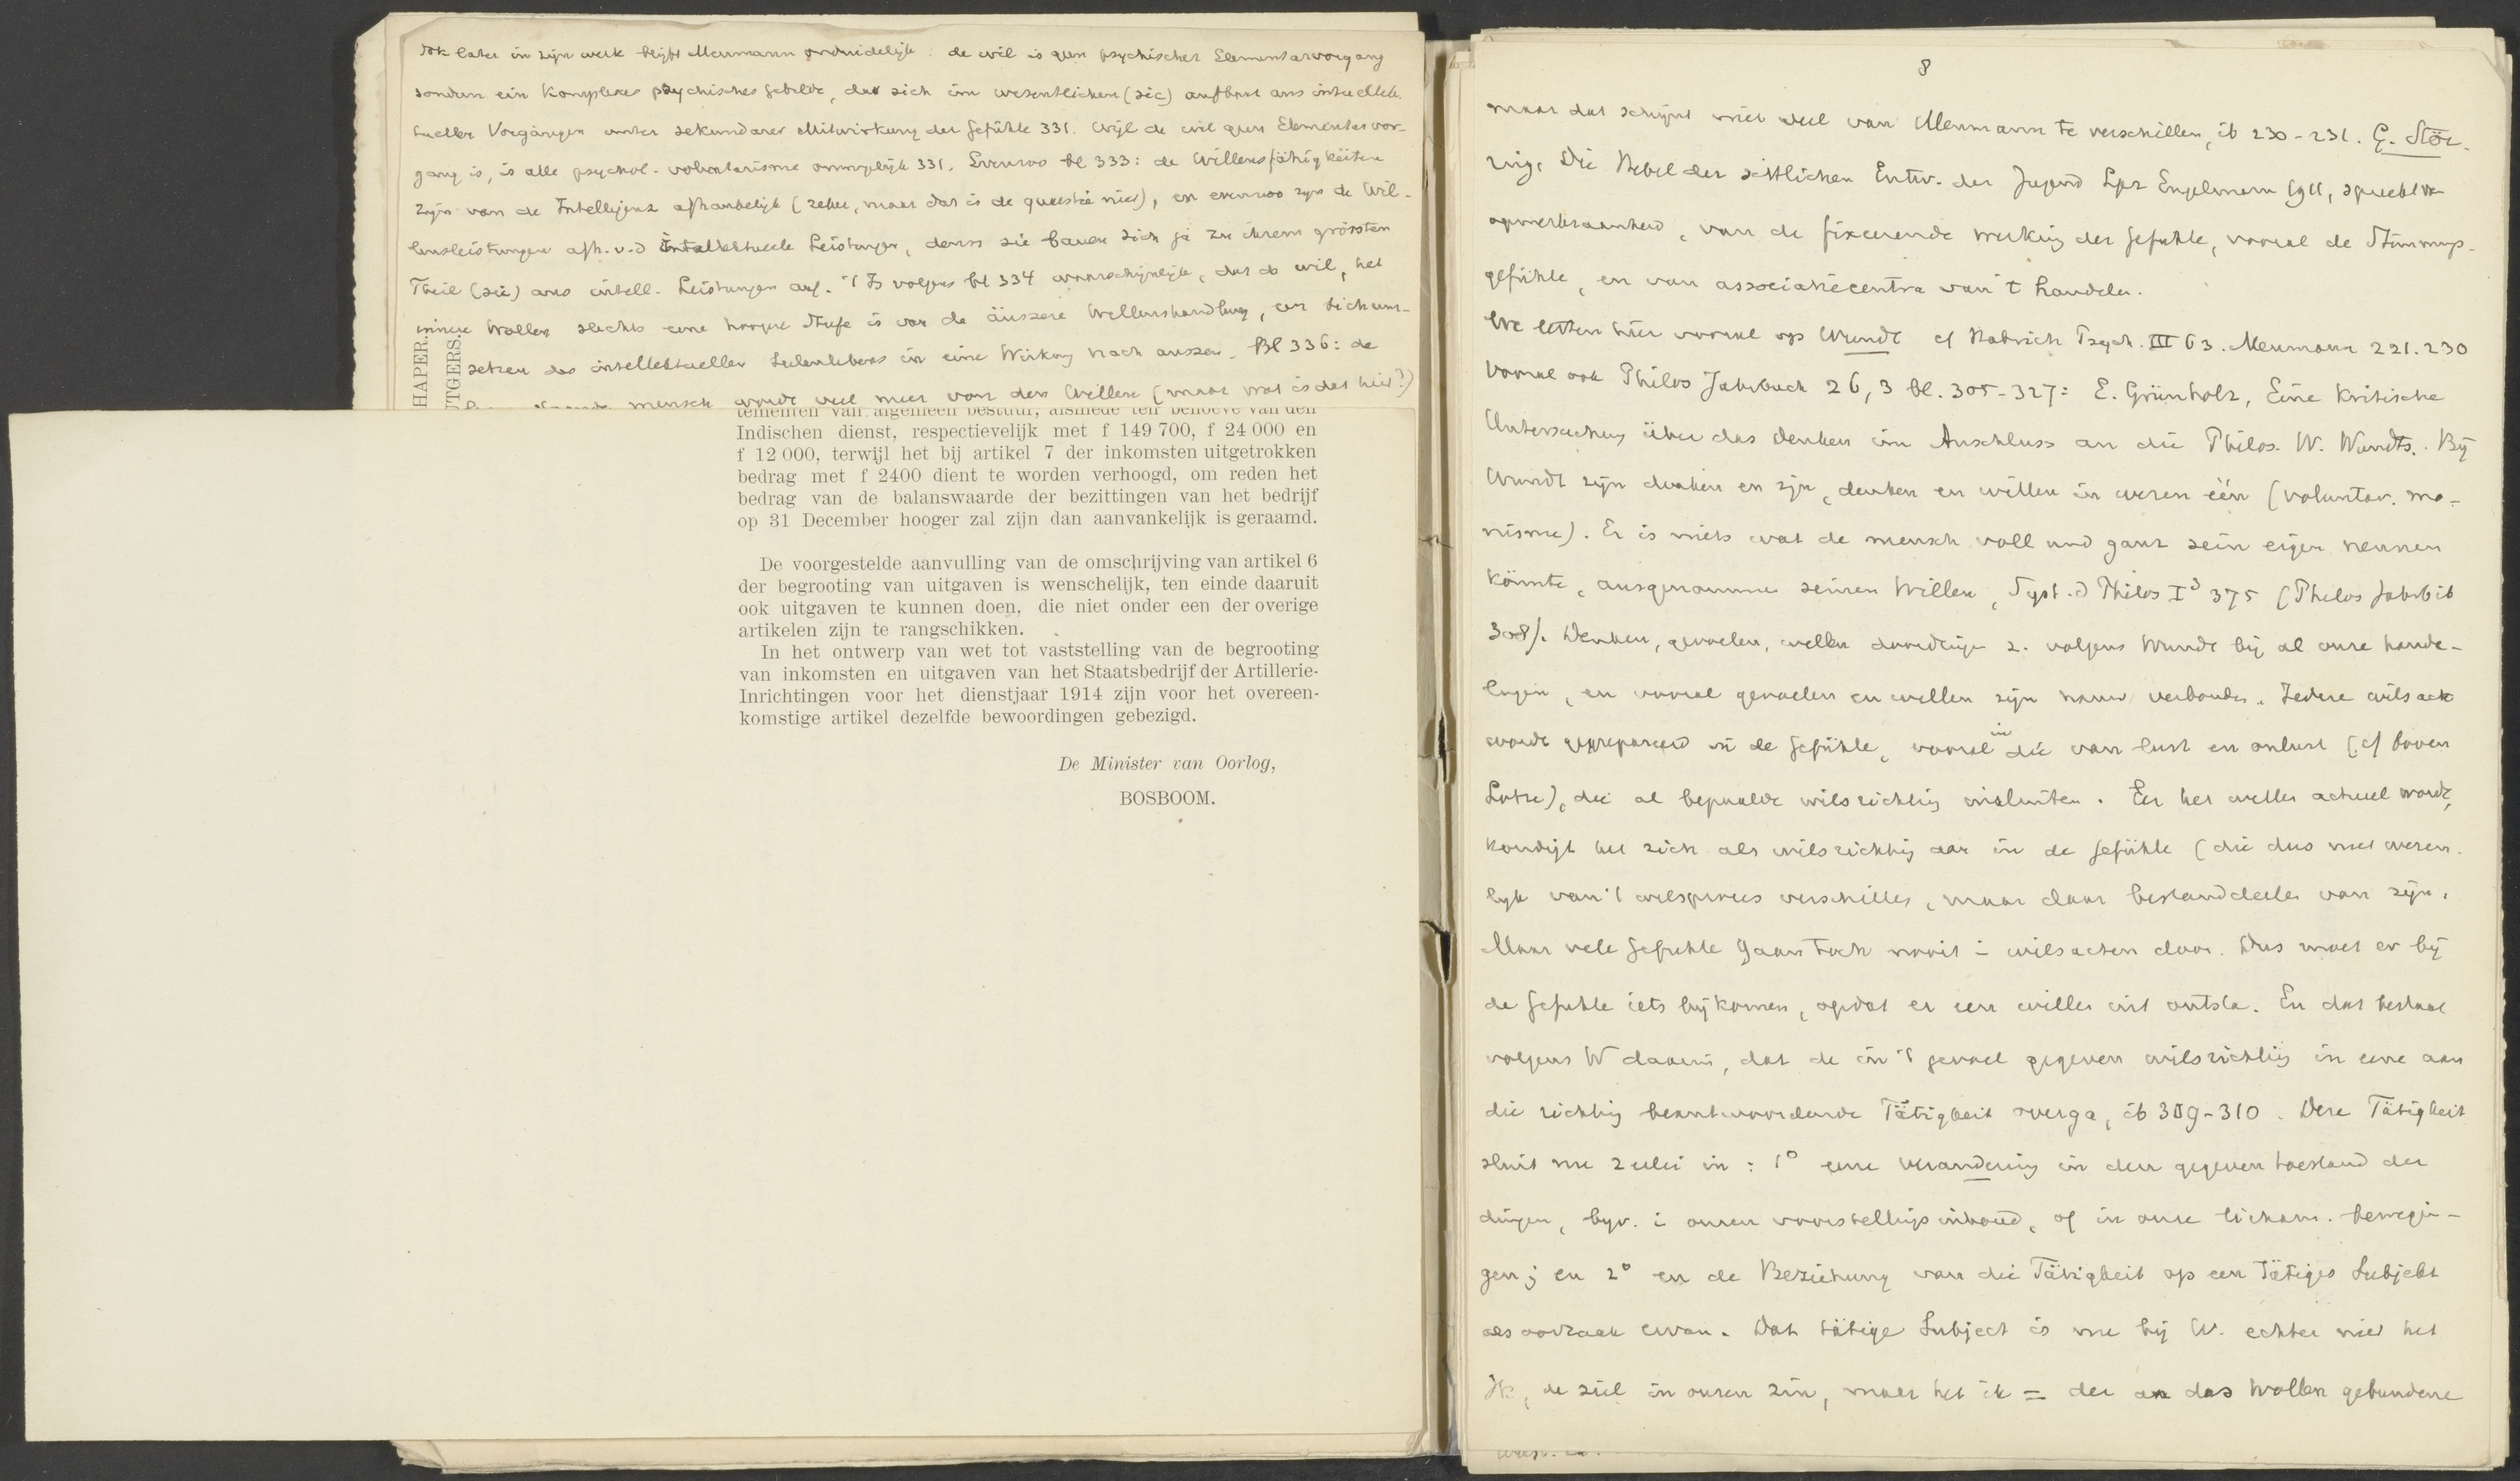 Ook later in zijn werk blijft Meumann onduidelijk. de wil is geen psychischer Elementarvorgang
sondern ein Komplexes psychisches Gebilde, das sich im wesentlichen (sic) aufbaut aus intellek-
tueller Vorgängen unter sekundarer Mitwirkung der Gefühle 331. Wijl de wil geen Elementarvor-
gang is, is alle psychol. voluntarisme onmogelijk 331. Evenzoo bl 333: de Willensfähigkeiten
zijn van de Intelligenz afhankelijk (zeker, maar dat is de quaestie niet), en evenzoo zijn de Wil-
lensleistungen afh. v.d intellektuelle Leistungen, denn sie bauen sich ja zu ihrem grössten
Theil (sic) aus intell. Leistungen auf. 't Is volgens bl 334 waarschijnlijk, dat de wil, het
innere Wollen slechts eene hoogere Stufe is van de äussere Willenshandlung, een sichum-
setzen des intellektuellen Seelenlebens in eine Wirkung nach aussen. Bl 336: de
mensch wordt veel meer von dem Willen (maar wat is dat hier?)
HAPER.
UTGERS.
tementen van algemeen bestuur, alsmede ten behoeve van den
Indischen dienst, respectievelijk met f 149 700, f 24 000 en
f 12 000, terwijl het bij artikel 7 der inkomsten uitgetrokken
bedrag met f 2400 dient te worden verhoogd, om reden het
bedrag van de balanswaarde der bezittingen van het bedrijf
op 31 December hooger zal zijn dan aanvankelijk is geraamd.
De voorgestelde aanvulling van de omschrijving van artikel 6
der begrooting van uitgaven is wenschelijk, ten einde daaruit
ook uitgaven te kunnen doen, die niet onder een der overige
artikelen zijn te rangschikken.
In het ontwerp van wet tot vaststelling van de begrooting
van inkomsten en uitgaven van het Staatsbedrijf der Artillerie-
Inrichtingen voor het dienstjaar 1914 zijn voor het overeen-
komstige artikel dezelfde bewoordingen gebezigd.
De Minister van Oorlog,
BOSBOOM.
8
maar dat schijnt niet veel van Meumann te verschillen, ib 230-231. G. Stör-
ring, Die Hebel der sittlichen Entw. der Jugend Lpz Engelmann 1911, spreekt v
opmerkzaamheid, van de fixeerende werking der Gefühle, vooral de Stimmungs-
gefühle, en van associatiecentra van 't handelen.
We letten hier vooral op Wundt cf Natrich Psych. III 63. Meumann 221. 230
vooral ook Philos Jahrbuch 26, 3 bl. 305-327: E. Grünholz, Eine kritische
Untersuchung über das Denken im Anschluss an die Philos. W. Wundts. Bij
Wundt zijn denken en zijn, denken en willen in wezen één (voluntar. mo-
nisme). Er is niets wat de mensch voll und ganz sein eigen nennen
könnte, ausgenommen seinen Willen, Syst. d Philos I³ 375 (Philos Jahrb ib
308). Denken, gevoelen, willen doordringen z. volgens Wundt bij al onze hande-
lingen, en vooral gevoelen en willen zijn nauw verbonden. Iedere wilsacte
wordt geprepareerd in de Gefühle, vooral in die van lust en onlust (cf boven
Lotze), die al bepaalde wilsrichting insluiten. Eer het willen actueel wordt,
kondigt het zich als wilsrichting aan in de Gefühle (die dus niet wezen-
lijk van 't wilsproces verschillen, maar daar bestanddeelen van zijn.
Maar vele Gefühle gaan toch nooit in wilsacten door. Dus moet er bij
de Gefühle iets bijkomen, opdat er een willen uit ontsta. En dat bestaat
volgens W daarin, dat de in 't gevoel gegeven wilsrichting in eene aan
die richting beantwoordende Tätigkeit overga, ib 309-310. Deze Tätigkeit
sluit nu 2 erlei in: 1° eene verandering in den gegeven toestand der
dingen, bijv. in onzen voorstellingsinhoud, of in onze licham. bewegin-
gen; en 2° en de Beziehung van die Tätigkeit op een tätiges Subjekt
als oorzaak ervan. Dat tätige Subject is nu bij W. echter niet het
ik, de ziel in onzen zin, maar het ik = der an das Wollen gebundene